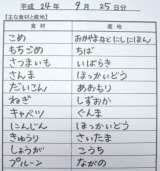 平成 24年 9月 25日分
【主な食材と産地】
食材 産地
こめ おかやまなどにしにほん
もちごめ ちば
さつまいも いばらき
さんま ほっかいどう
だいこん あおもり
ねぎ しずおか
キャベツ ぐんま
にんじん ほっかいどう
きゅうり さいたま
しょうが こうち
プルーン ながの